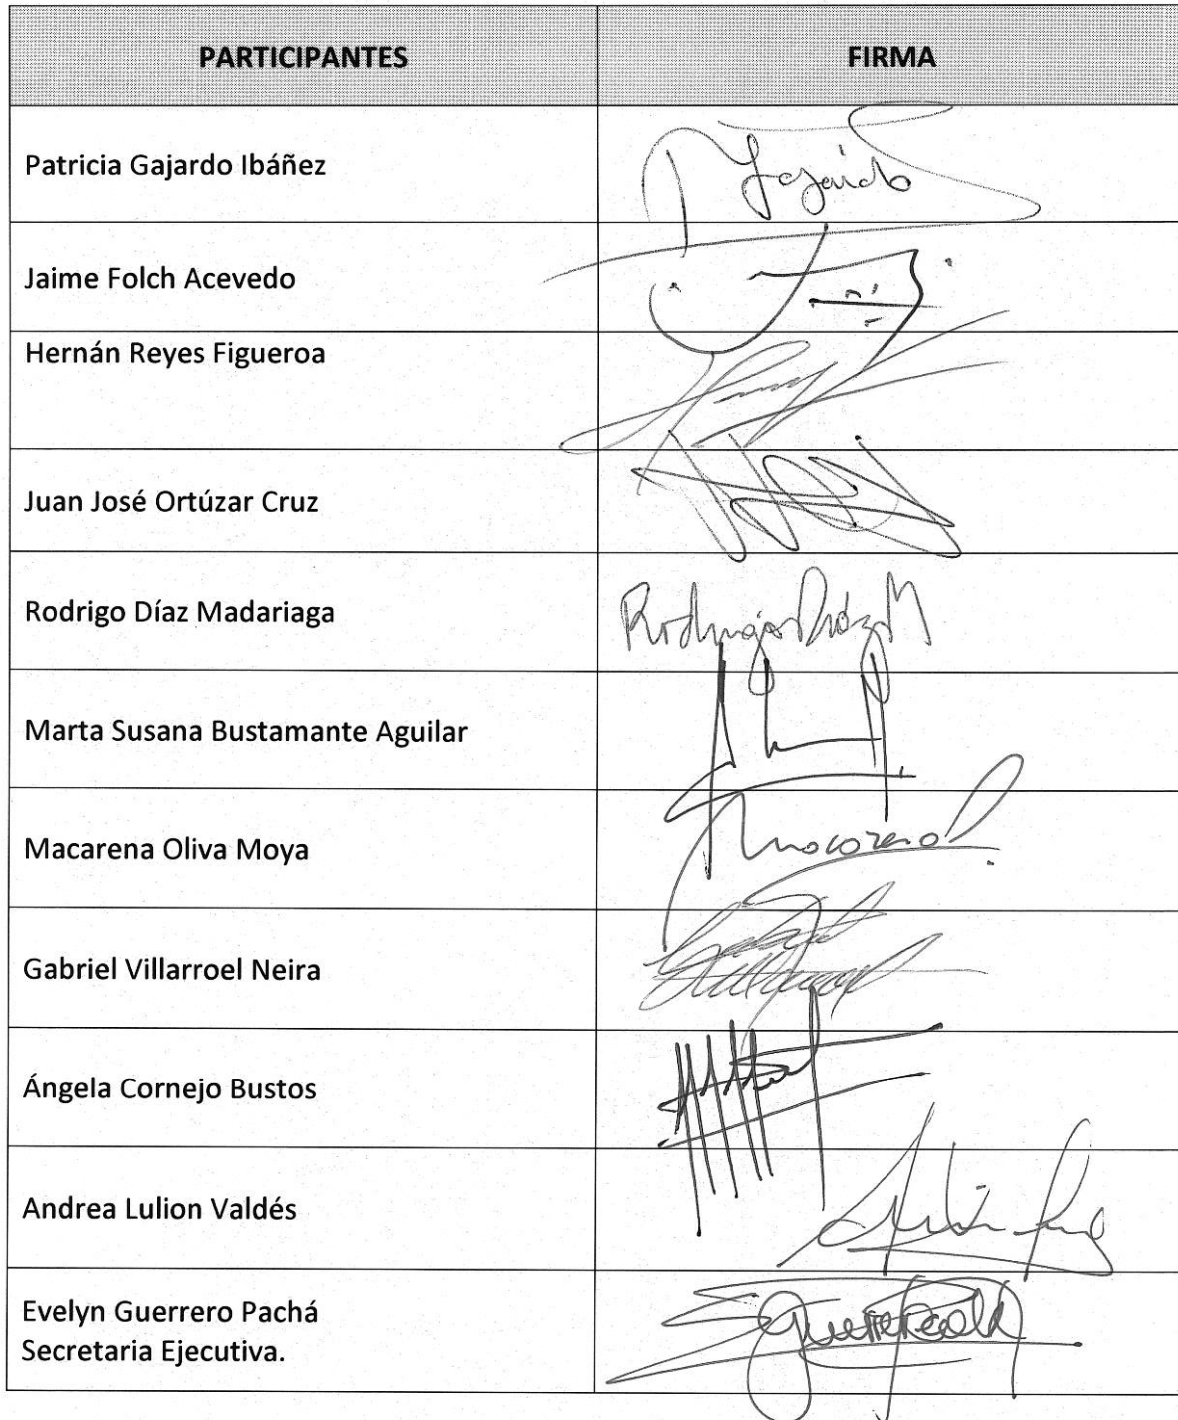 PARTICIPANTES FIRMA
Patricia Gajardo Ibáñez Gajardo
Jaime Folch Acevedo
Hernán Reyes Figueroa
Juan José Ortúzar Cruz
Rodrigo Díaz Madariaga Rodrigo Díaz M
Marta Susana Bustamante Aguilar
Macarena Oliva Moya Macarena
Gabriel Villarroel Neira Gabriel Villarroel
Ángela Cornejo Bustos
Andrea Lulion Valdés
Evelyn Guerrero Pachá
Secretaria Ejecutiva.